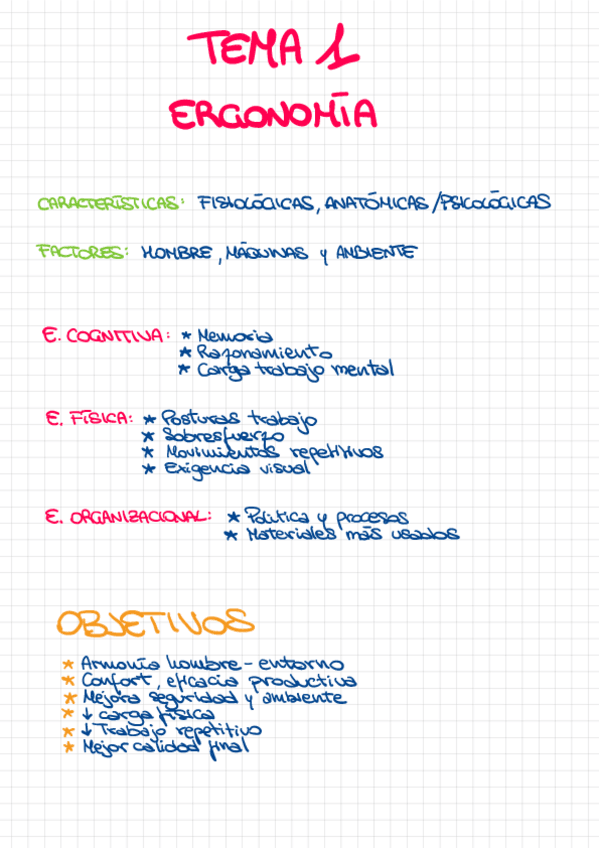 TEMA 1
ERGONOMÍA
CARACTERÍSTICAS: FISIOLÓGICAS, ANATÓMICAS/PSICOLÓGICAS
FACTORES: HOMBRE, MÁQUINAS y AMBIENTE
E. COGNITIVA: * Memoria
* Razonamiento
* Carga trabajo mental
E. FÍSICA: * Posturas trabajo
* Sobresfuerzo
* Movimientos repetitivos
* Exigencia visual
E. ORGANIZACIONAL: * Política y procesos
* Materiales más usados
OBJETIVOS
* Armonía hombre-entorno
* Confort, eficacia productiva
* Mejora seguridad y ambiente
* ↓ carga física
* ↓ Trabajo repetitivo
* Mejor calidad final